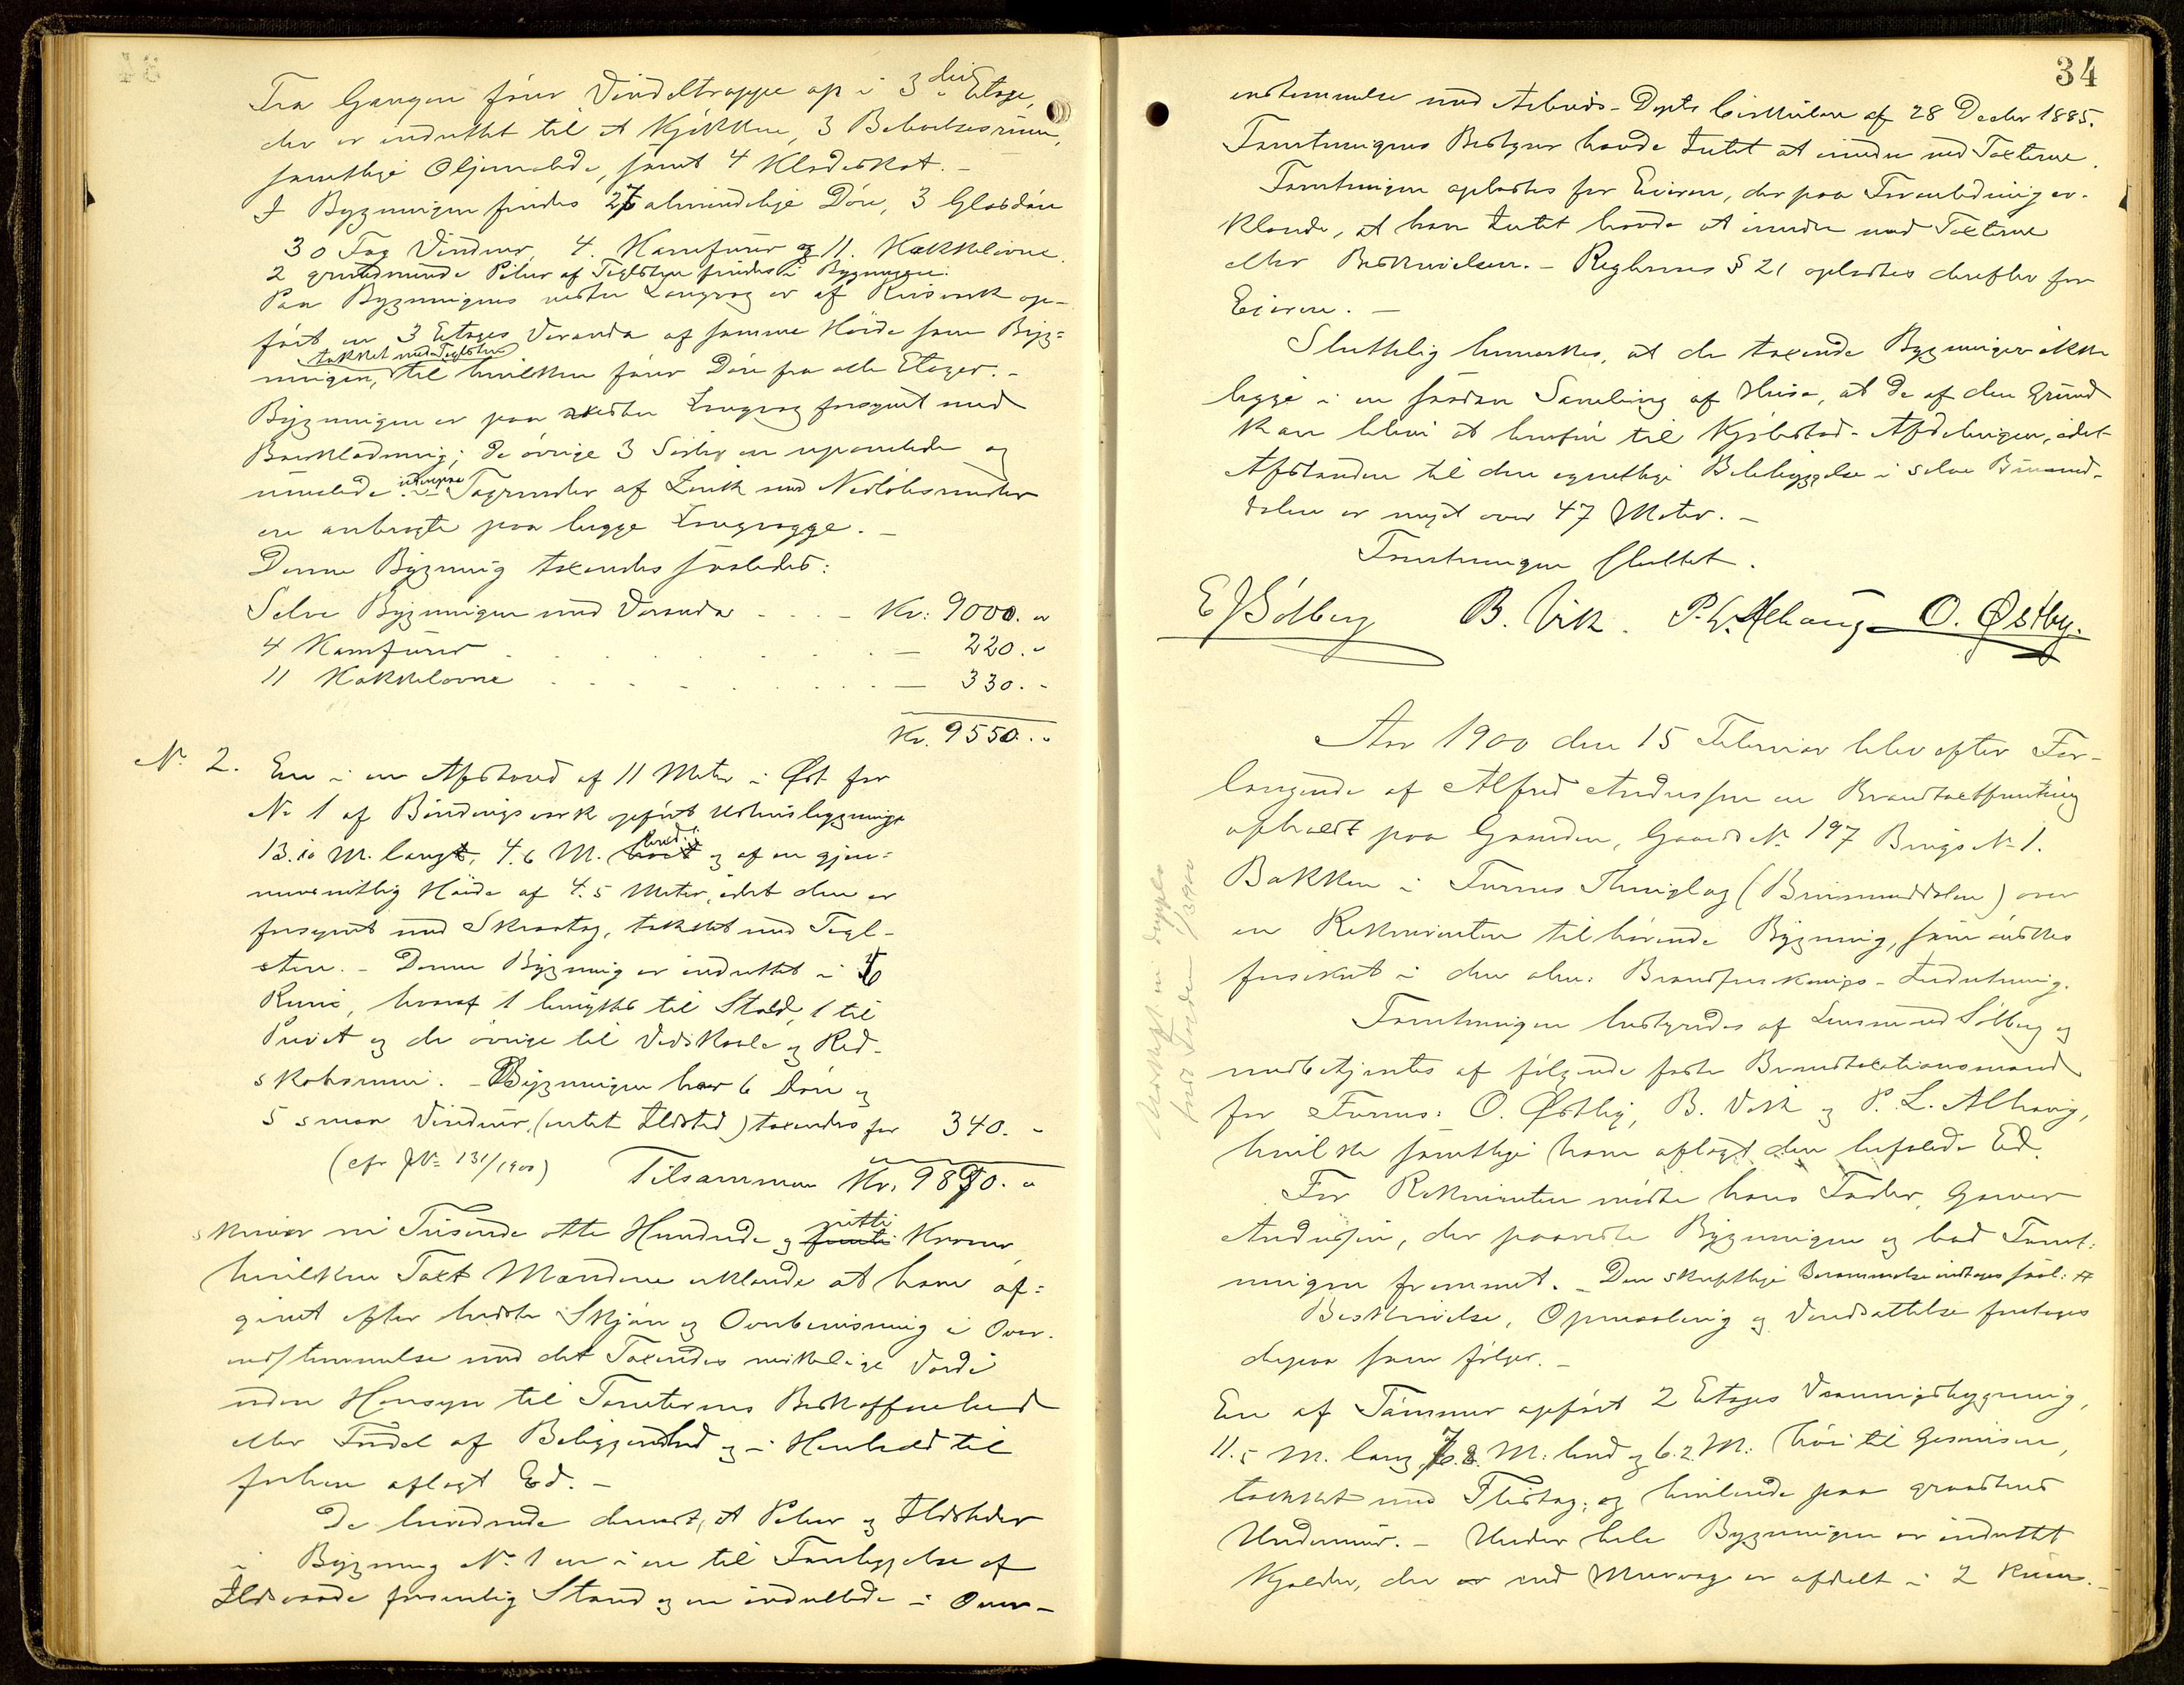 Fra Gangen fører Vindeltrappe op i 3die Etage,
der er indrettet til et Kjøkken, 3 Beboelsesrum,
samtlige Oljemalede, samt 4 Klædeskot. -
I Bygningen findes 27 almindelige Døre, 3 Glasdøre
30 Fag Vinduer, 4. Kamfurer og 11. Kakkelovne.
2 grundmurede Piber af Teglsten findes i Bygningen.
Paa Bygningens vestre Langvæg er af Reisverk op-
ført en 3 Etages Veranda af samme Høide som Byg-
takket med Teglsten
ningen, til hvilken fører Døre fra alle Etager. -
Bygningen er paa vestre Langvæg forsynet med
Bordklædning; de øvrige 3 Sider ere upanelede og
umalede. Tagrender af Zink med Nedløbsrender
ere anbragte paa begge Langvægge. -
Denne Bygning taxeredes saaledes:
Selve Bygningen med Veranda - . . - Kr: 9000. "
4 Kamfurer . . . . . - 220. "
11 Kakkelovne . . . . . - 330. "
Kr. 9550. "
No 2. En i en Afstand af 11 Meter i Øst for
No 1 af Bindingsverk opført Udhusbygning
13.10 M. lang, 4.6 M. bred og af en gjen-
nemsnitlig Høide af 4.5 Meter, idet den er
forsynet med Skraatag, takket med Tegl-
sten. - Denne Bygning er indrettet i
Rum, hvoraf 1 benyttes til Stald, 1 til
Privet og de øvrige til Vedskaale og Red-
skabsrum. - Bygningen har 6 Døre og
5 smaa Vinduer, (intet Ildsted) taxeredes for 340. "
(cfr J No 131/1900) Tilsammen Kr. 9890. "
skriver ni Tusende otte Hundrede og nitti Kroner
hvilken Taxt Mændene erklærede at have af-
givet efter bedste Skjøn og Overbevisning i Over-
ensstemmelse med det Taxeredes virkelige Værdi
uden Hensyn til Tomternes Beskaffenhed
eller Fordel af Beliggenhed og i Henhold til
forhen aflagt Ed. -
De bevidnede dernæst, at Piber og Ildsteder
i Bygning No 1 ere i en til Forebyggelse af
Ildsvaade forsvarlig Stand og ere indrettede i Over-
34
ensstemmelse med Arbeids-Depts Cirkulære af 28 Decbr 1885.
Forretningens Bestyrer havde Intet at erindre ved Taxterne.
Forretningen oplæstes for Eieren, der paa Foranledning er-
klærede, at han Intet havde at erindre mod Taxterne
eller Beskrivelsen. - Reglernes § 21 oplæstes derefter for
Eieren. -
Sluttelig bemærkes, at de taxerede Bygninger ikke
ligge i en saadan Samling af Huse, at de af den Grund
kan blive at henføre til Kjøbstad-Afdelingen, idet
Afstanden til den egentlige Bebyggelse i selve Brumund-
dalen er meget over 47 Meter. -
Forretningen sluttet.
E Sølberg B. Vik. P. L. Alhaug O. Østby.
Aar 1900 den 15 Februar blev efter For-
langende af Alfred Andersen en Brandtaxtforretning
afholdt paa Gaarden, Gaards No 197 Brugs No 1.
Bakken i Furnes Thinglag (Brumunddalen) over
en Rekvirenten tilhørende Bygning, som ønskes
forsikret i den alm: Brandforsikrings-Indretning.
Forretningen bestyredes af Lensmand Sølberg og
medbetjentes af følgende faste Brandtaxationsmænd
for Furnes: O. Østby, B. Vik og P. L. Alhaug,
hvilke samtlige have aflagt den befalede Ed.
For Rekvirenten mødte hans Fader, Garver
Andersen, der paaviste Bygningen og bad Forret-
ningen fremmet. - Den skriftlige Berammelse indtages saal: #
Beskrivelse, Opmaaling og Værdsættelse foretoges
derpaa som følger. -
En af Tømmer opført 2 Etages Vaaningsbygning,
11.5 M. lang, 7.8. M: bred og 6.2. M: høi til Gesimsen,
tækket med Flistag, og hvilende paa graastens
Undermur. - Under hele Bygningen er indrettet
Kjelder, der ved Murvæg er afdelt i 2 Rum. -